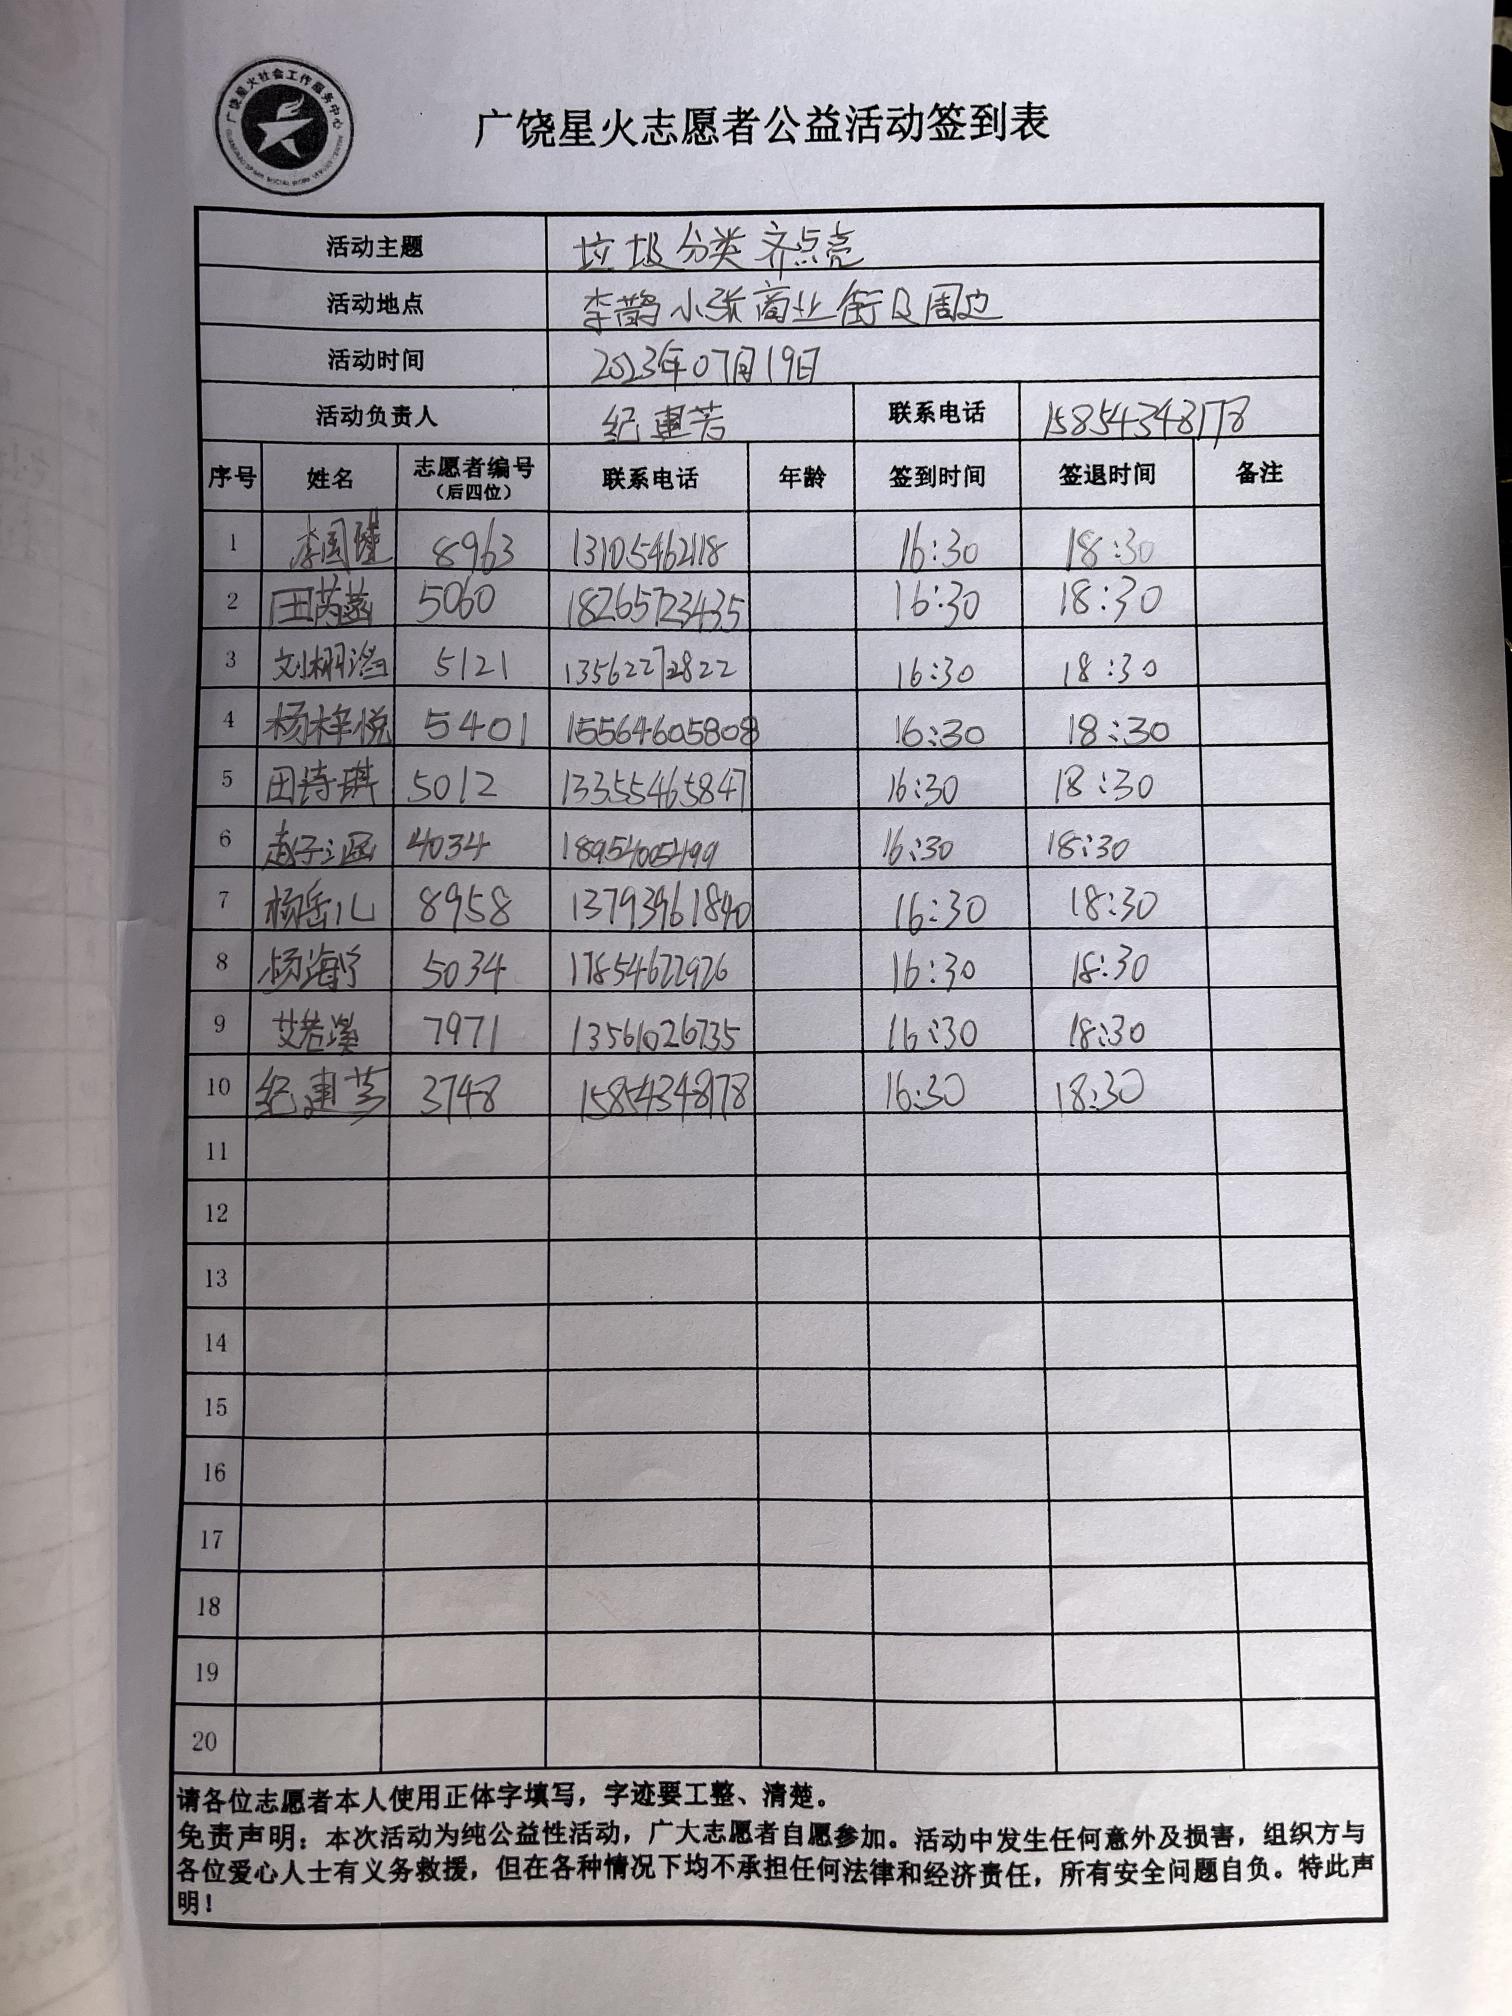 广饶星火社会工作服务中心
广饶星火志愿者公益活动签到表
活动主题 垃圾分类齐点亮
活动地点 李鹊小张商业街及周边
活动时间 2023年07月19日
活动负责人 纪建芳 联系电话 15854348178
序号 姓名 志愿者编号（后四位） 联系电话 年龄 签到时间 签退时间 备注
1 8963 13105462118 16:30 18:30
2 田芮菡 5060 18265723435 16:30 18:30
3 5121 13562272822 16:30 18:30
4 杨梓悦 5401 15564605808 16:30 18:30
5 田诗琪 5012 13355465847 16:30 18:30
6 赵子涵 4034 18954005499 16:30 18:30
7 杨岳儿 8958 13793961840 16:30 18:30
8 杨海宁 5034 17854672926 16:30 18:30
9 艾若溪 7971 13561026735 16:30 18:30
10 纪建芳 3748 15854348178 16:30 18:30
11
12
13
14
15
16
17
18
19
20
请各位志愿者本人使用正体字填写，字迹要工整、清楚。
免责声明：本次活动为纯公益性活动，广大志愿者自愿参加。活动中发生任何意外及损害，组织方与
各位爱心人士有义务救援，但在各种情况下均不承担任何法律和经济责任，所有安全问题自负。特此声
明！